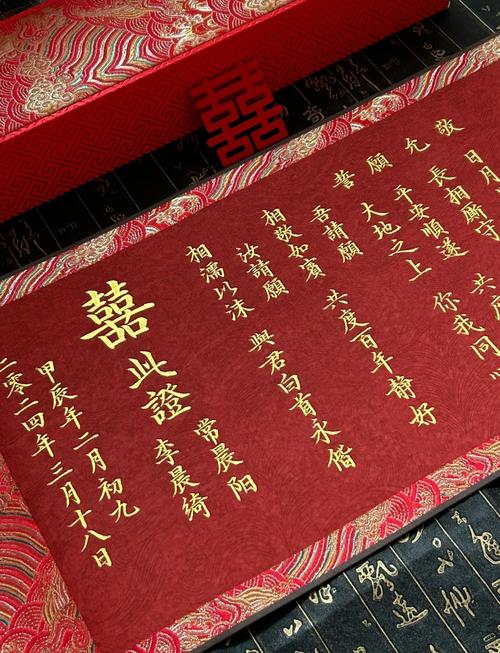 敬允願誓
日月
共
長相廝守
你我同
平安順遂
大地之上
共度百年靜好
吾請願
相敬如賓
與君白首永偕
汝請願
相濡以沫
常晨陽
李晨綺
此證
囍
甲辰年二月初九
二零二四年三月十八日
囍